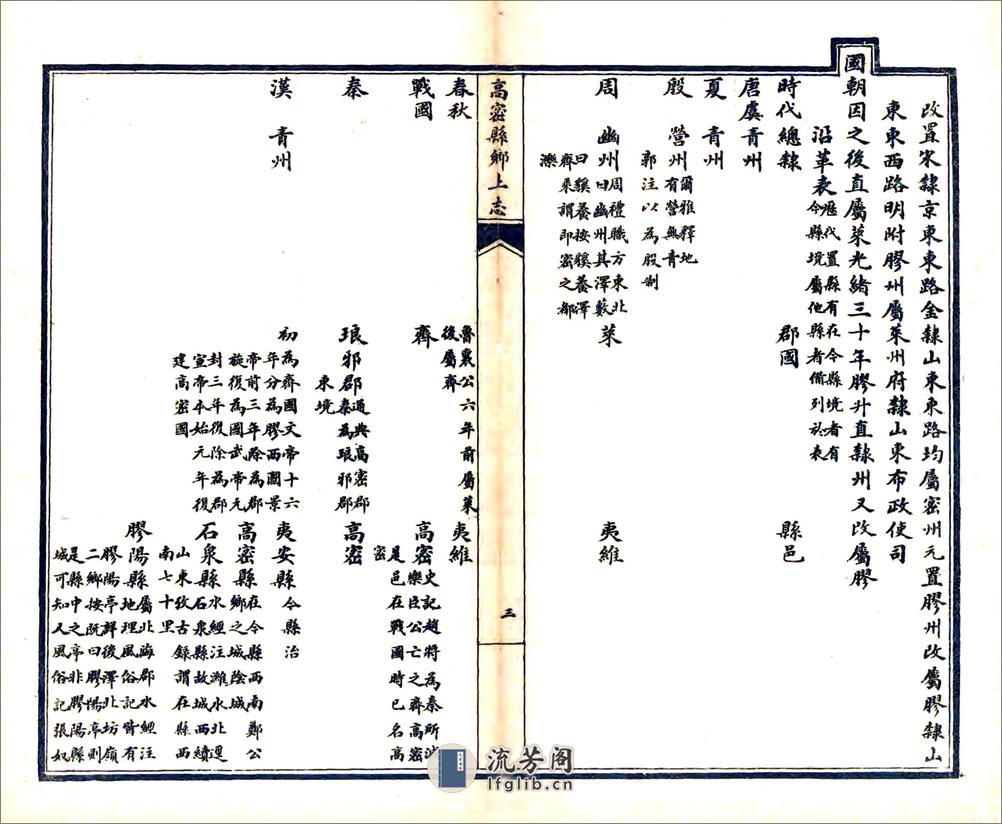 改置宋隸京東東路金隸山東東路均屬密州元置膠州改屬膠隸山
東東西路明附膠州屬萊州府隸山東布政使司
國朝因之後直屬萊光緒三十年膠升直隸州又改屬膠
沿革表 歷代置縣有在今縣境者有
今縣境屬他縣者備列於表
時代總隸 郡國 縣邑
唐虞青州
夏 青州
殷 營州 爾雅釋地
有營無青
郭注以為殷制
周 幽州 周禮職方東北
曰幽州其澤藪
曰貕養按貕養澤
齊乘謂即密之都
濼
萊 夷維
高密縣鄉土志
三
春秋 魯襄公六年前屬萊
後屬齊
夷維
戰國 齊 高密 史記趙將為秦所滅
樂臣公亡之齊高密
是邑在戰國時已名高
密
秦 琅邪郡 通典高密郡
秦為琅邪郡
東境
高密
漢 青州 初為齊國文帝十六
年分為膠西國景
帝前三年除為郡
旋復為國武帝元
封三年復除為郡
宣帝本始元年復
建高密國
夷安縣 今縣治
高密縣 在今縣西南鄭公
鄉之城陰城
石泉縣 水經注濰水北逕
石泉縣故城西續
山東考古錄謂在縣西
南七十里
膠陽縣 屬北海郡水經注
地理風俗記皆有
膠陽亭 後澤北坊嶺
二鄉按既曰膠陽亭則
是縣中之亭非膠陽縣
城可知又風俗記張奴
流芳阁
lfglib.cn